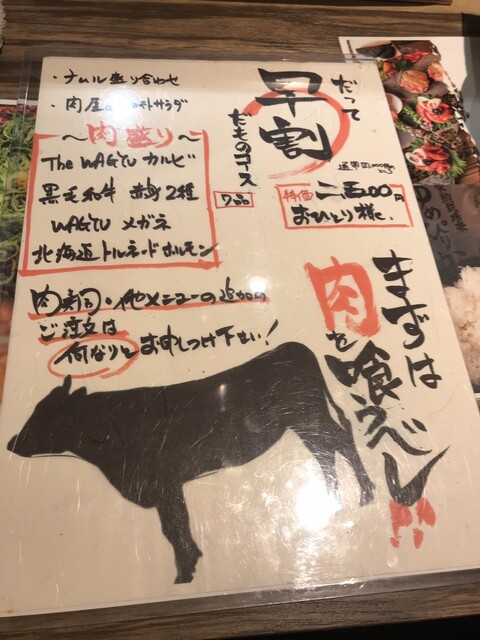 だって
早割
だものコース
7品
通常四,000円
特価 二五00円
おひとり様に、
・ナムル盛り合わせ
・肉屋の サラダ
～肉盛り～
The WAGYU カルビ
黒毛和牛 赤身2種
WAGYU メガネ
北海道トルネードホルモン
肉寿司・他メニューの追加の
ご注文は
何なりとお申しつけ下さい!
まずは
肉を喰うべし!!